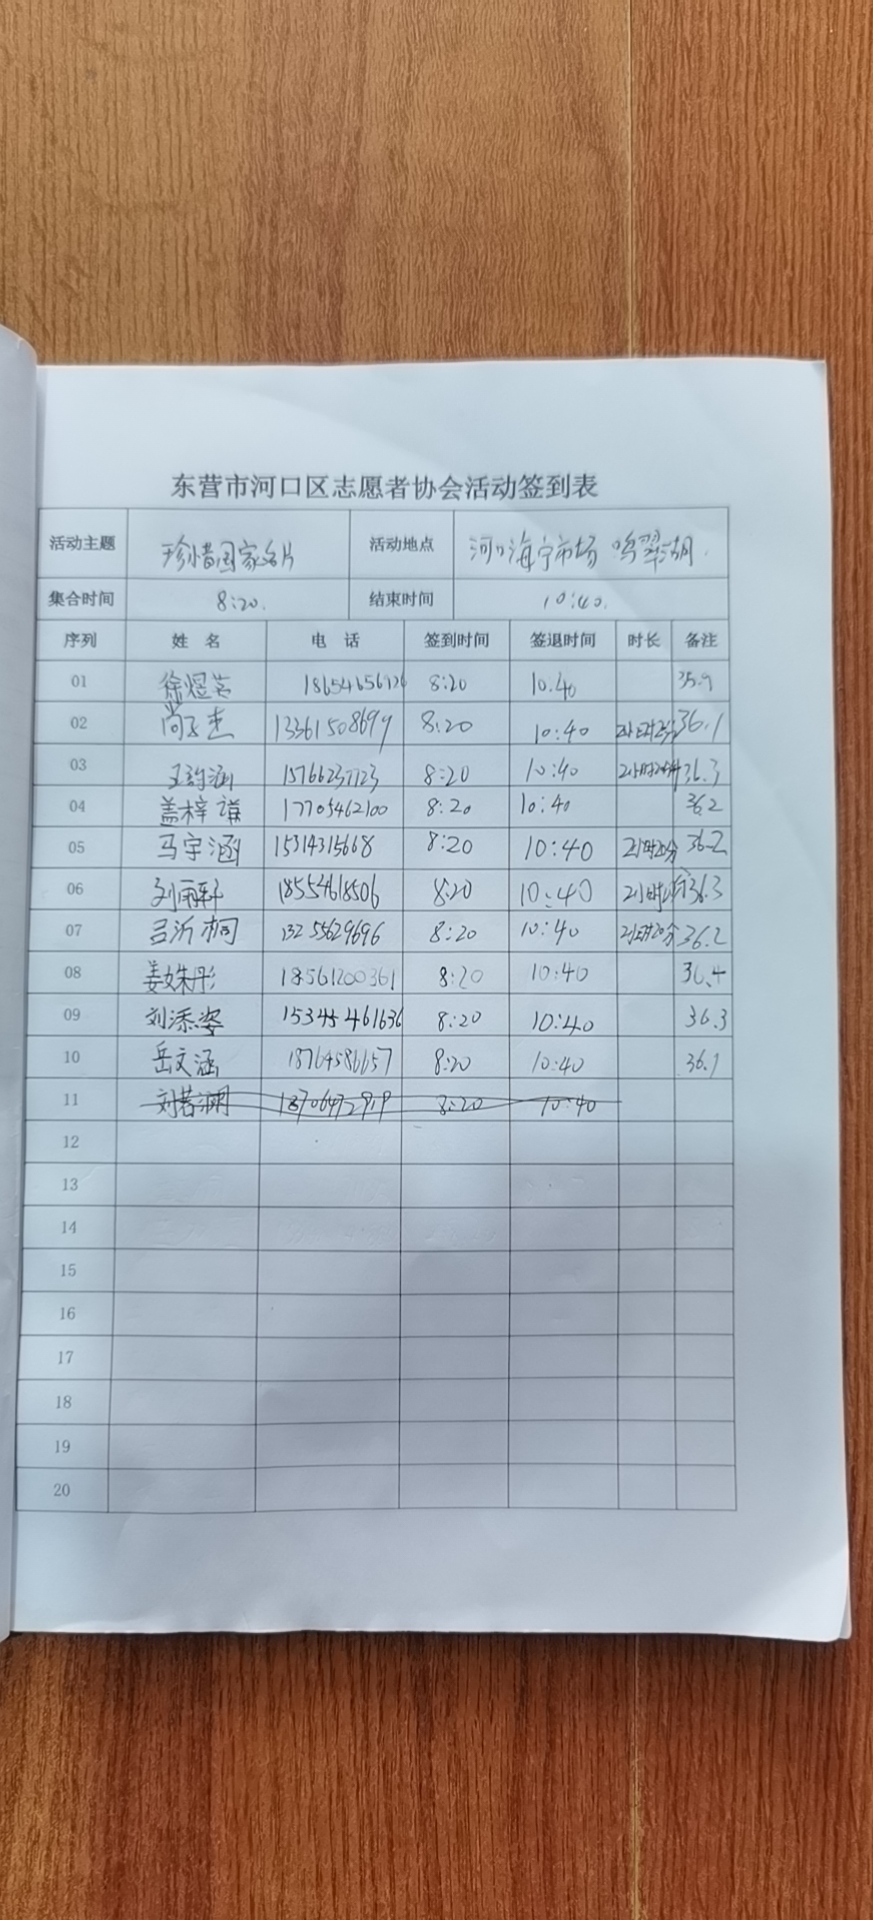 东营市河口区志愿者协会活动签到表
活动主题 珍惜国家名片 活动地点 河口海宁市场 鸣翠湖.
集合时间 8:20. 结束时间 10:40.
序列 姓 名 电 话 签到时间 签退时间 时长 备注
01 徐煜 8:20 10:40 35.9
02 13361508699 8:20 10:40 36.1
03 王韵涵 8:20 10:40 2小时20分 36.3
04 盖梓谦 17705462100 8:20 10:40 36.2
05 马宇涵 15314315668 8:20 10:40 2小时20分 36.2
06 刘雨轩 18554618506 8:20 10:40 36.3
07 吕沂桐 13255629696 8:20 10:40 2小时20分 36.2
08 姜姝彤 18561200361 8:20 10:40 36.4
09 刘添姿 15345461636 8:20 10:40 36.3
10 岳文涵 18764586657 8:20 10:40 36.1
11 刘若澜 8:20 10:40
12
13
14
15
16
17
18
19
20